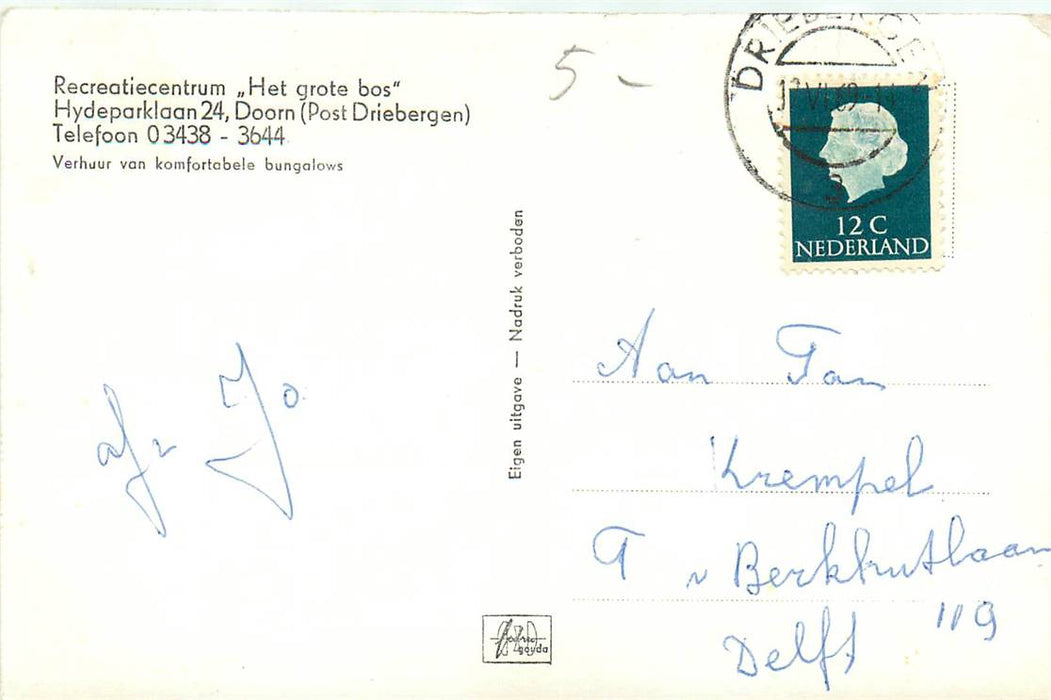 Recreatiecentrum „Het grote bos“
Hydeparklaan 24, Doorn (Post Driebergen)
Telefoon 03438 - 3644
Verhuur van komfortabele bungalows
5 -
DRIEBERGEN
12 C
NEDERLAND
Eigen uitgave — Nadruk verboden
afz Jo
Aan Fam
Krempel
T v Berkhutlaan
119
Delft
gouda